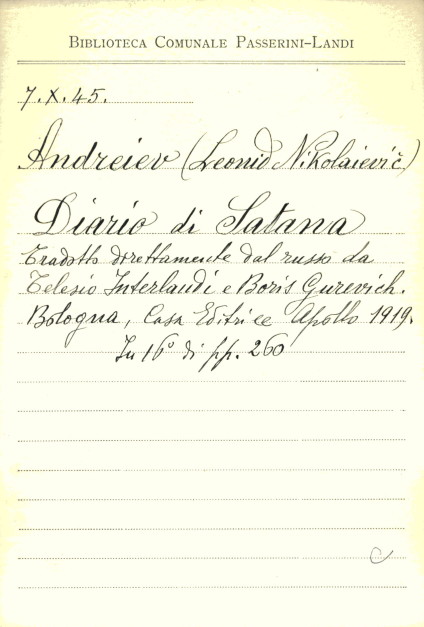 BIBLIOTECA COMUNALE PASSERINI-LANDI
7. X. 45.
Andreiev (Leonid Nikolaievič)
Diario di Satana
Tradotto direttamente dal russo da
Telesio Interlandi e Boris Gurevich.
Bologna, Casa Editrice Apollo 1919.
In 16° di pp. 260
C